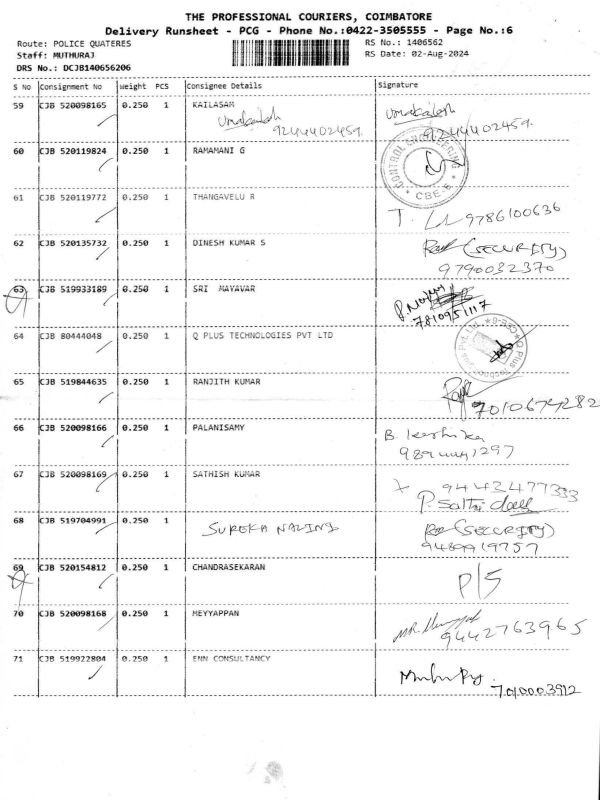 THE PROFESSIONAL COURIERS, COIMBATORE
Delivery Runsheet - PCG - Phone No.:0422-3505555 - Page No.:6
Route: POLICE QUATERES RS No.: 1406562
Staff: MUTHURAJ RS Date: 02-Aug-2024
DRS No.: DCJB140656206
S No Consignment No Weight PCS Consignee Details Signature
59 CJB 520098165 0.250 1 KAILASAM
9244402459. 9244402459.
60 CJB 520119824 0.250 1 RAMAMANI G
CONTROL ENGINEERING CBE-6
61 CJB 520119772 0.250 1 THANGAVELU R
T. 9786100636
62 CJB 520135732 0.250 1 DINESH KUMAR S (SECURITY)
9790032370
63 CJB 519933189 0.250 1 SRI MAYAVAR
7810951117
64 CJB 80444048 0.250 1 Q PLUS TECHNOLOGIES PVT LTD
65 CJB 519844635 0.250 1 RANJITH KUMAR
7010674282
66 CJB 520098166 0.250 1 PALANISAMY B.
67 CJB 520098169 0.250 1 SATHISH KUMAR
68 CJB 519704991 0.250 1 SUREKA NALINI (SECURITY)
9489919757
69 CJB 520154812 0.250 1 CHANDRASEKARAN P/S
70 CJB 520098168 0.250 1 MEYYAPPAN
9442763965
71 CJB 519922804 0.250 1 ENN CONSULTANCY
7010003912